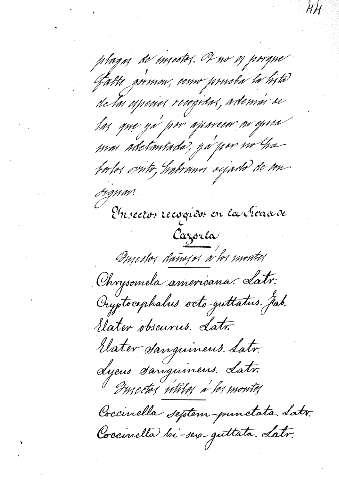 44
plagas de insectos. Y no es porque
falte gérmen, como prueba la lista
de las especies recogidas, además de
las que yá por aparecer en época
mas adelantada, yá por no ha-
berlos visto, habremos dejado de con-
signar.
Insectos recogidos en la Sierra de
Cazorla
Insectos dañosos á los montes
Chrysomela americana. Latr.
Cryptocephalus octo guttatus. Fab.
Elater obscurus. Latr.
Elater sanguineus. Latr.
Lycus sanguineus. Latr.
Insectos útiles á los montes
Coccinella septem-punctata. Latr.
Coccinella bi-sex-guttata. Latr.